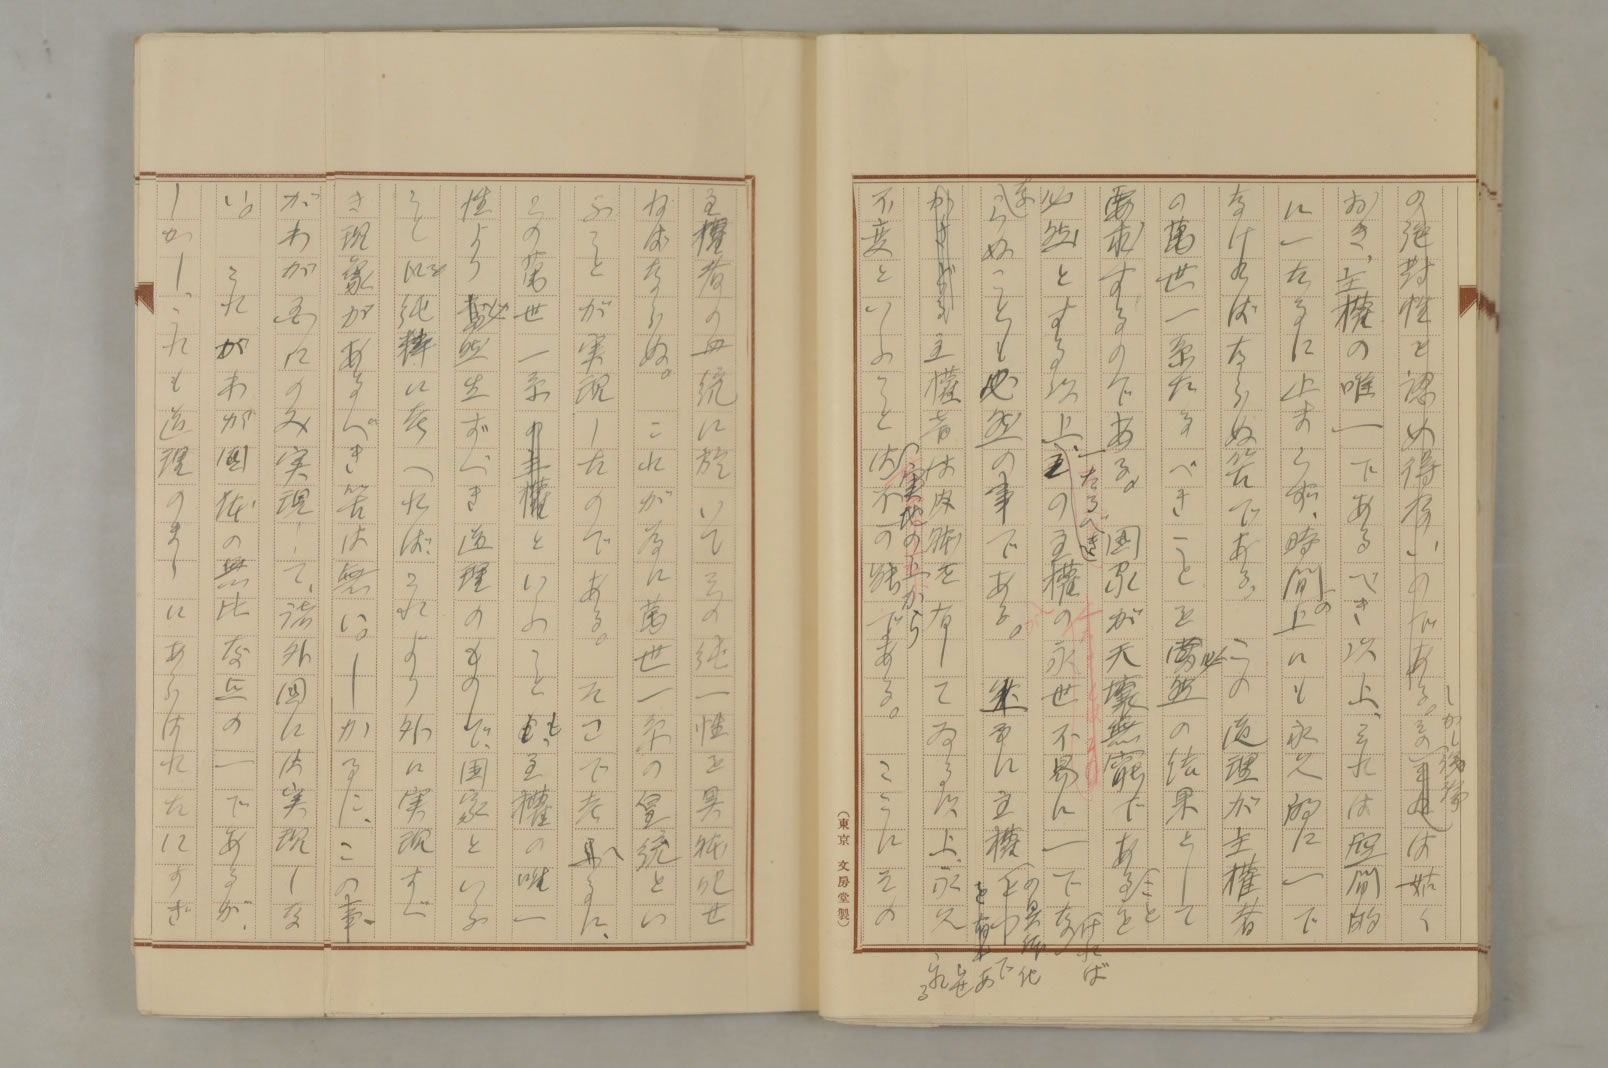 の絶対性を認め得ないのである。その は姑く
しかし
おき、主権の唯一であるべき以上、それは空間的
に一たるに止まらず、時間上にも永久的に一で
の
なければならぬ筈である。この道理が主権者
の萬世一系たるべきことを必然の結果として
要求するのである。国家が天壌無窮であることを
必然とする以上、その主権の永世不易に一でな
一たるべき
ければ
ならぬことも必然の事である。 に主権
の具体化
主権者は肉体を有してゐる以上、永久
不変といふことは不可能である。ここにその
実地の上から
(東京 文房堂製)
主権者の血統に於いてその純一性を具体化せ
ねばならぬ。これが為に萬世一系の皇統とい
ふことが実現したのである。ここで考へるに、
この萬世一系の主権といふことも、主権の唯一
性より必然生ずべき道理のもので、国家といふ
ことを純粋に考へれば、これより外に実現すべ
き現象があるべき筈は無い。しかるに、この事
がわが国にのみ実現して、諸外国には実現しな
い。これがわが国体の無比なる点の一であるが、
しかし、これも道理のまゝにあらはれたにすぎ